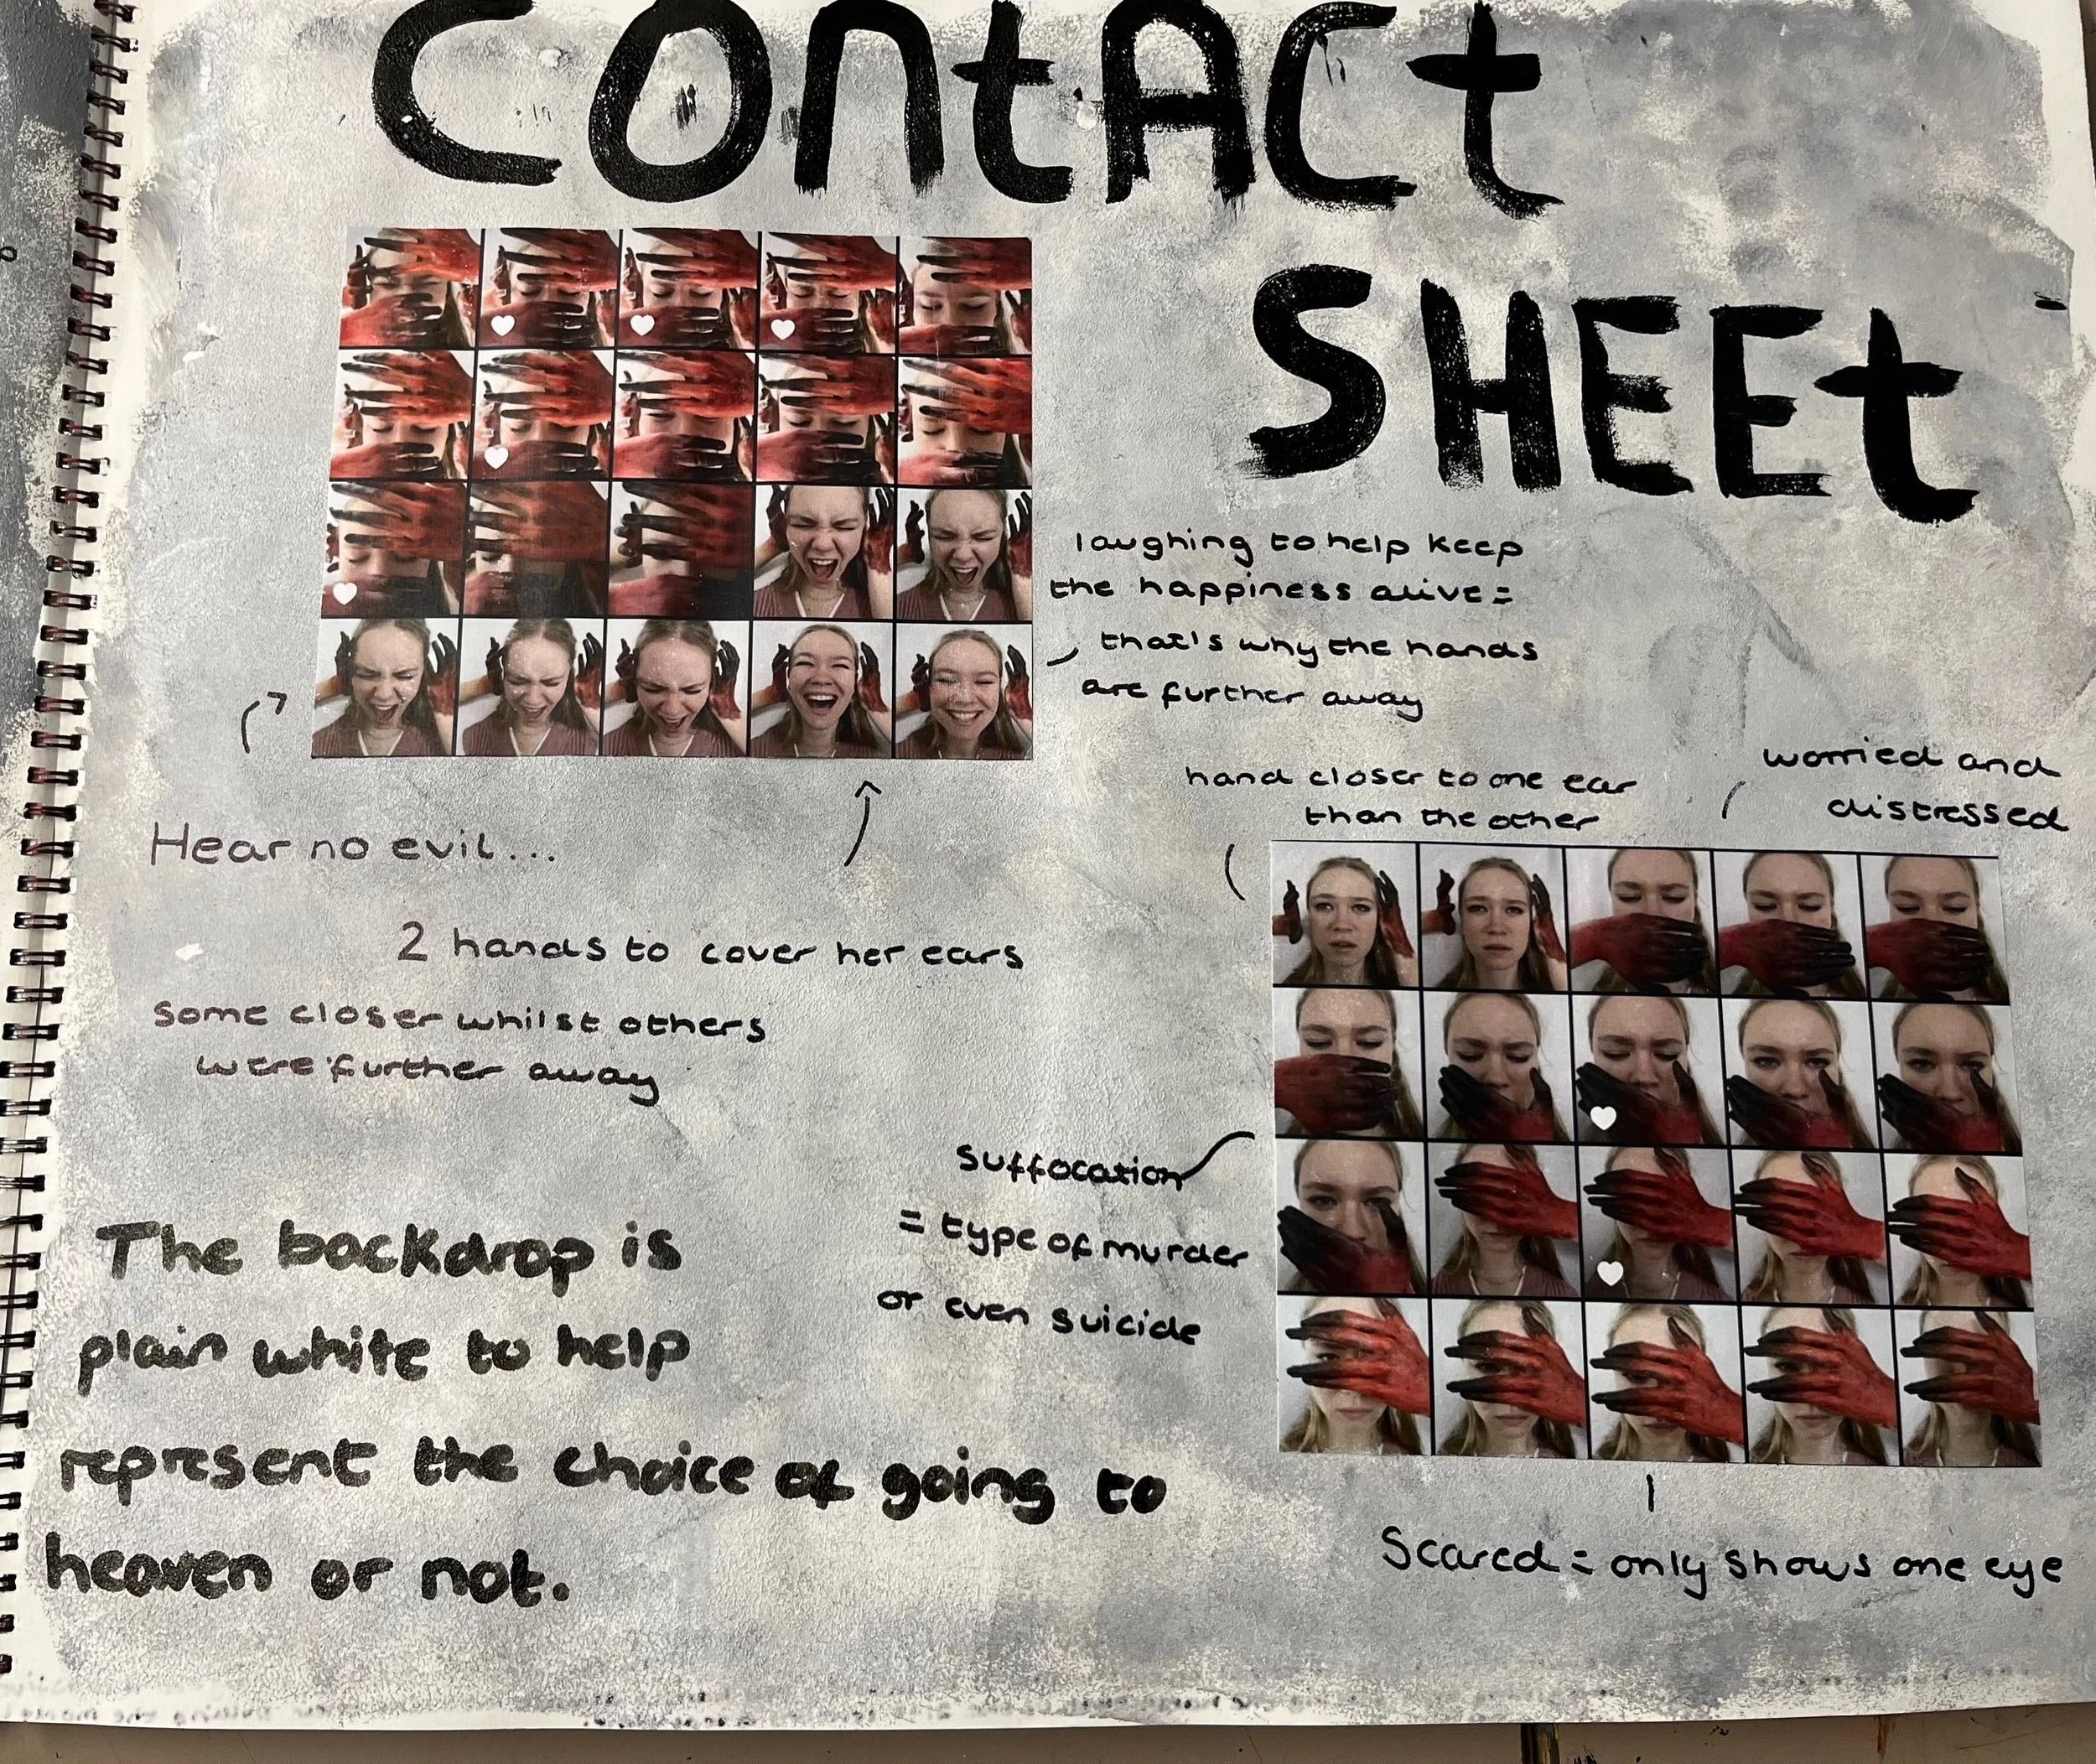 CONtACt
SHEEt
laughing to help keep
the happiness alive =
that's why the hands
are further away
hand closer to one ear
than the other
worried and
distressed
Hear no evil...
2 hands to cover her ears
Some closer whilst others
were further away
Suffocation
= type of murder
or even suicide
The backdrop is
plain white to help
represent the choice of going to
heaven or not.
Scared = only shows one eye